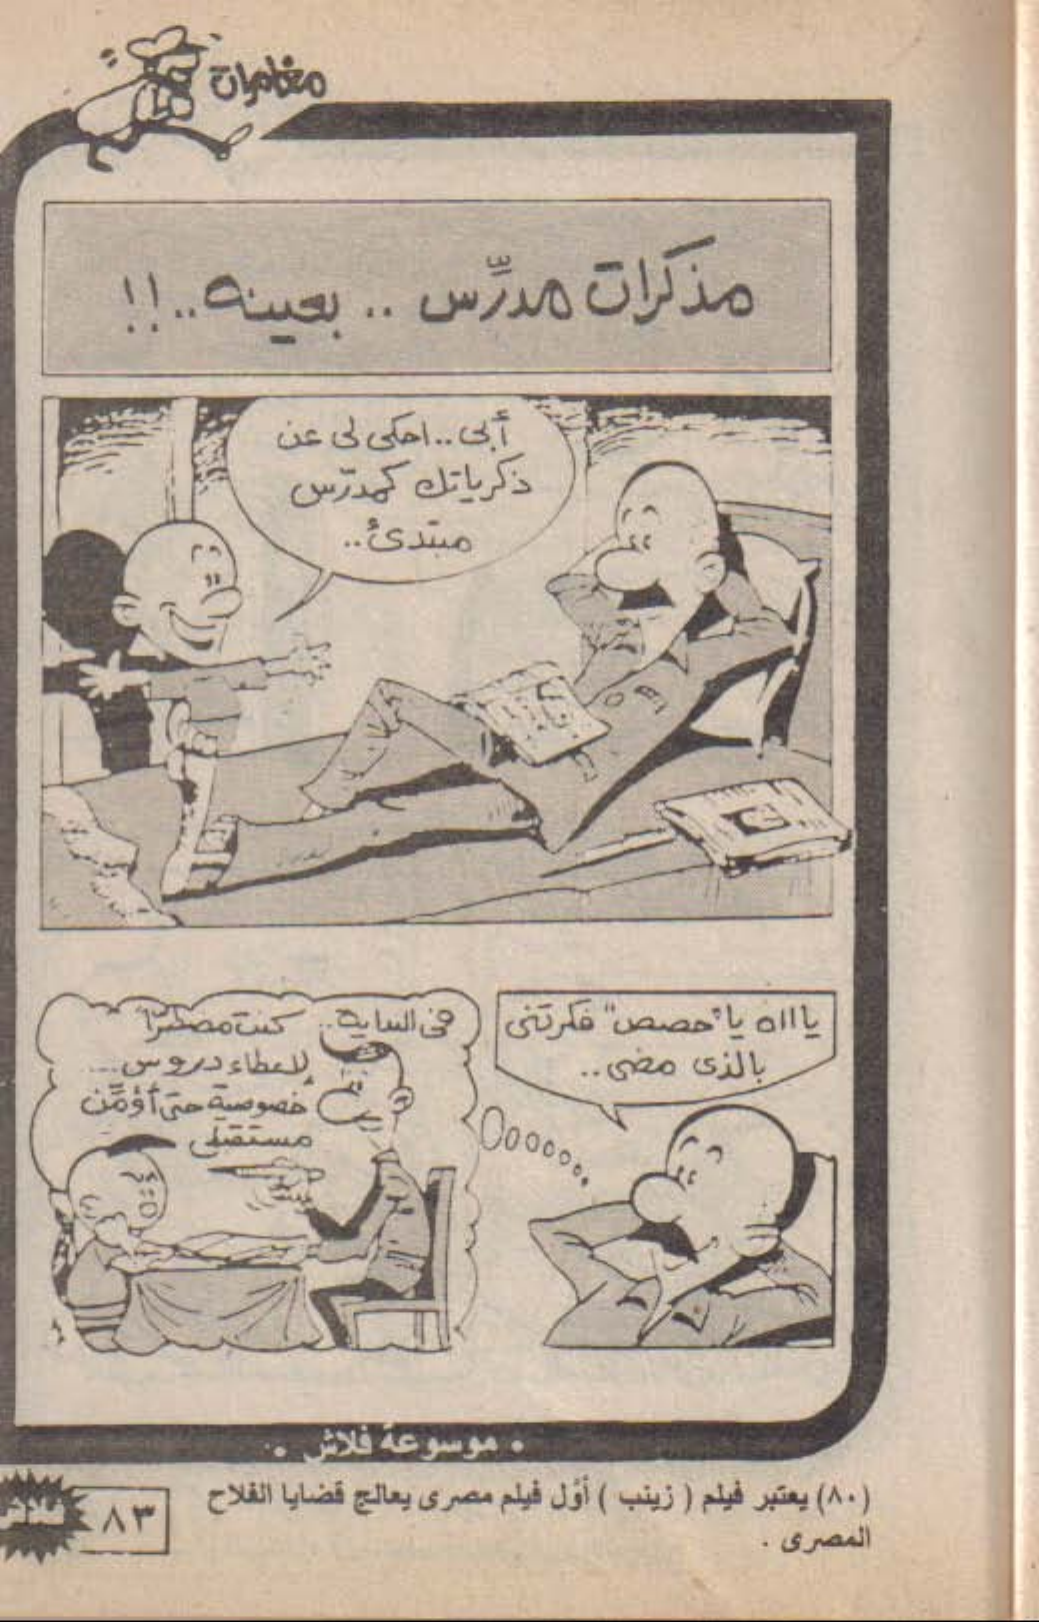 مغامرات
مذكرات مدرِّس .. بعينه..!!
أبى..احكى لى عن
ذكرياتك كمدرّس
مبتدئ..
يا ااه يا"حصص" فكرتنى
بالذى مضى..
فى البداية.. كنت مضطرًا
لإعطاء دروس....
خصوصية حتى أؤمِّن
مستقبلى
• موسوعة فلاش •
(٨٠) يعتبر فيلم ( زينب ) أوَّل فيلم مصرى يعالج قضايا الفلاح
المصرى .
٨٣
فلاش